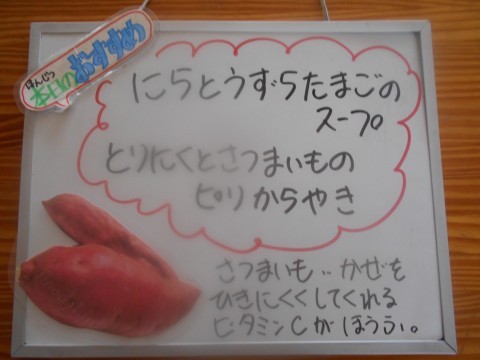 ほんじつ
本日のおすすめ
にらとうずらたまごの
スープ
とりにくとさつまいもの
ピリからやき
さつまいも‥かぜを
ひきにくくしてくれる
ビタミンCがほうふ。